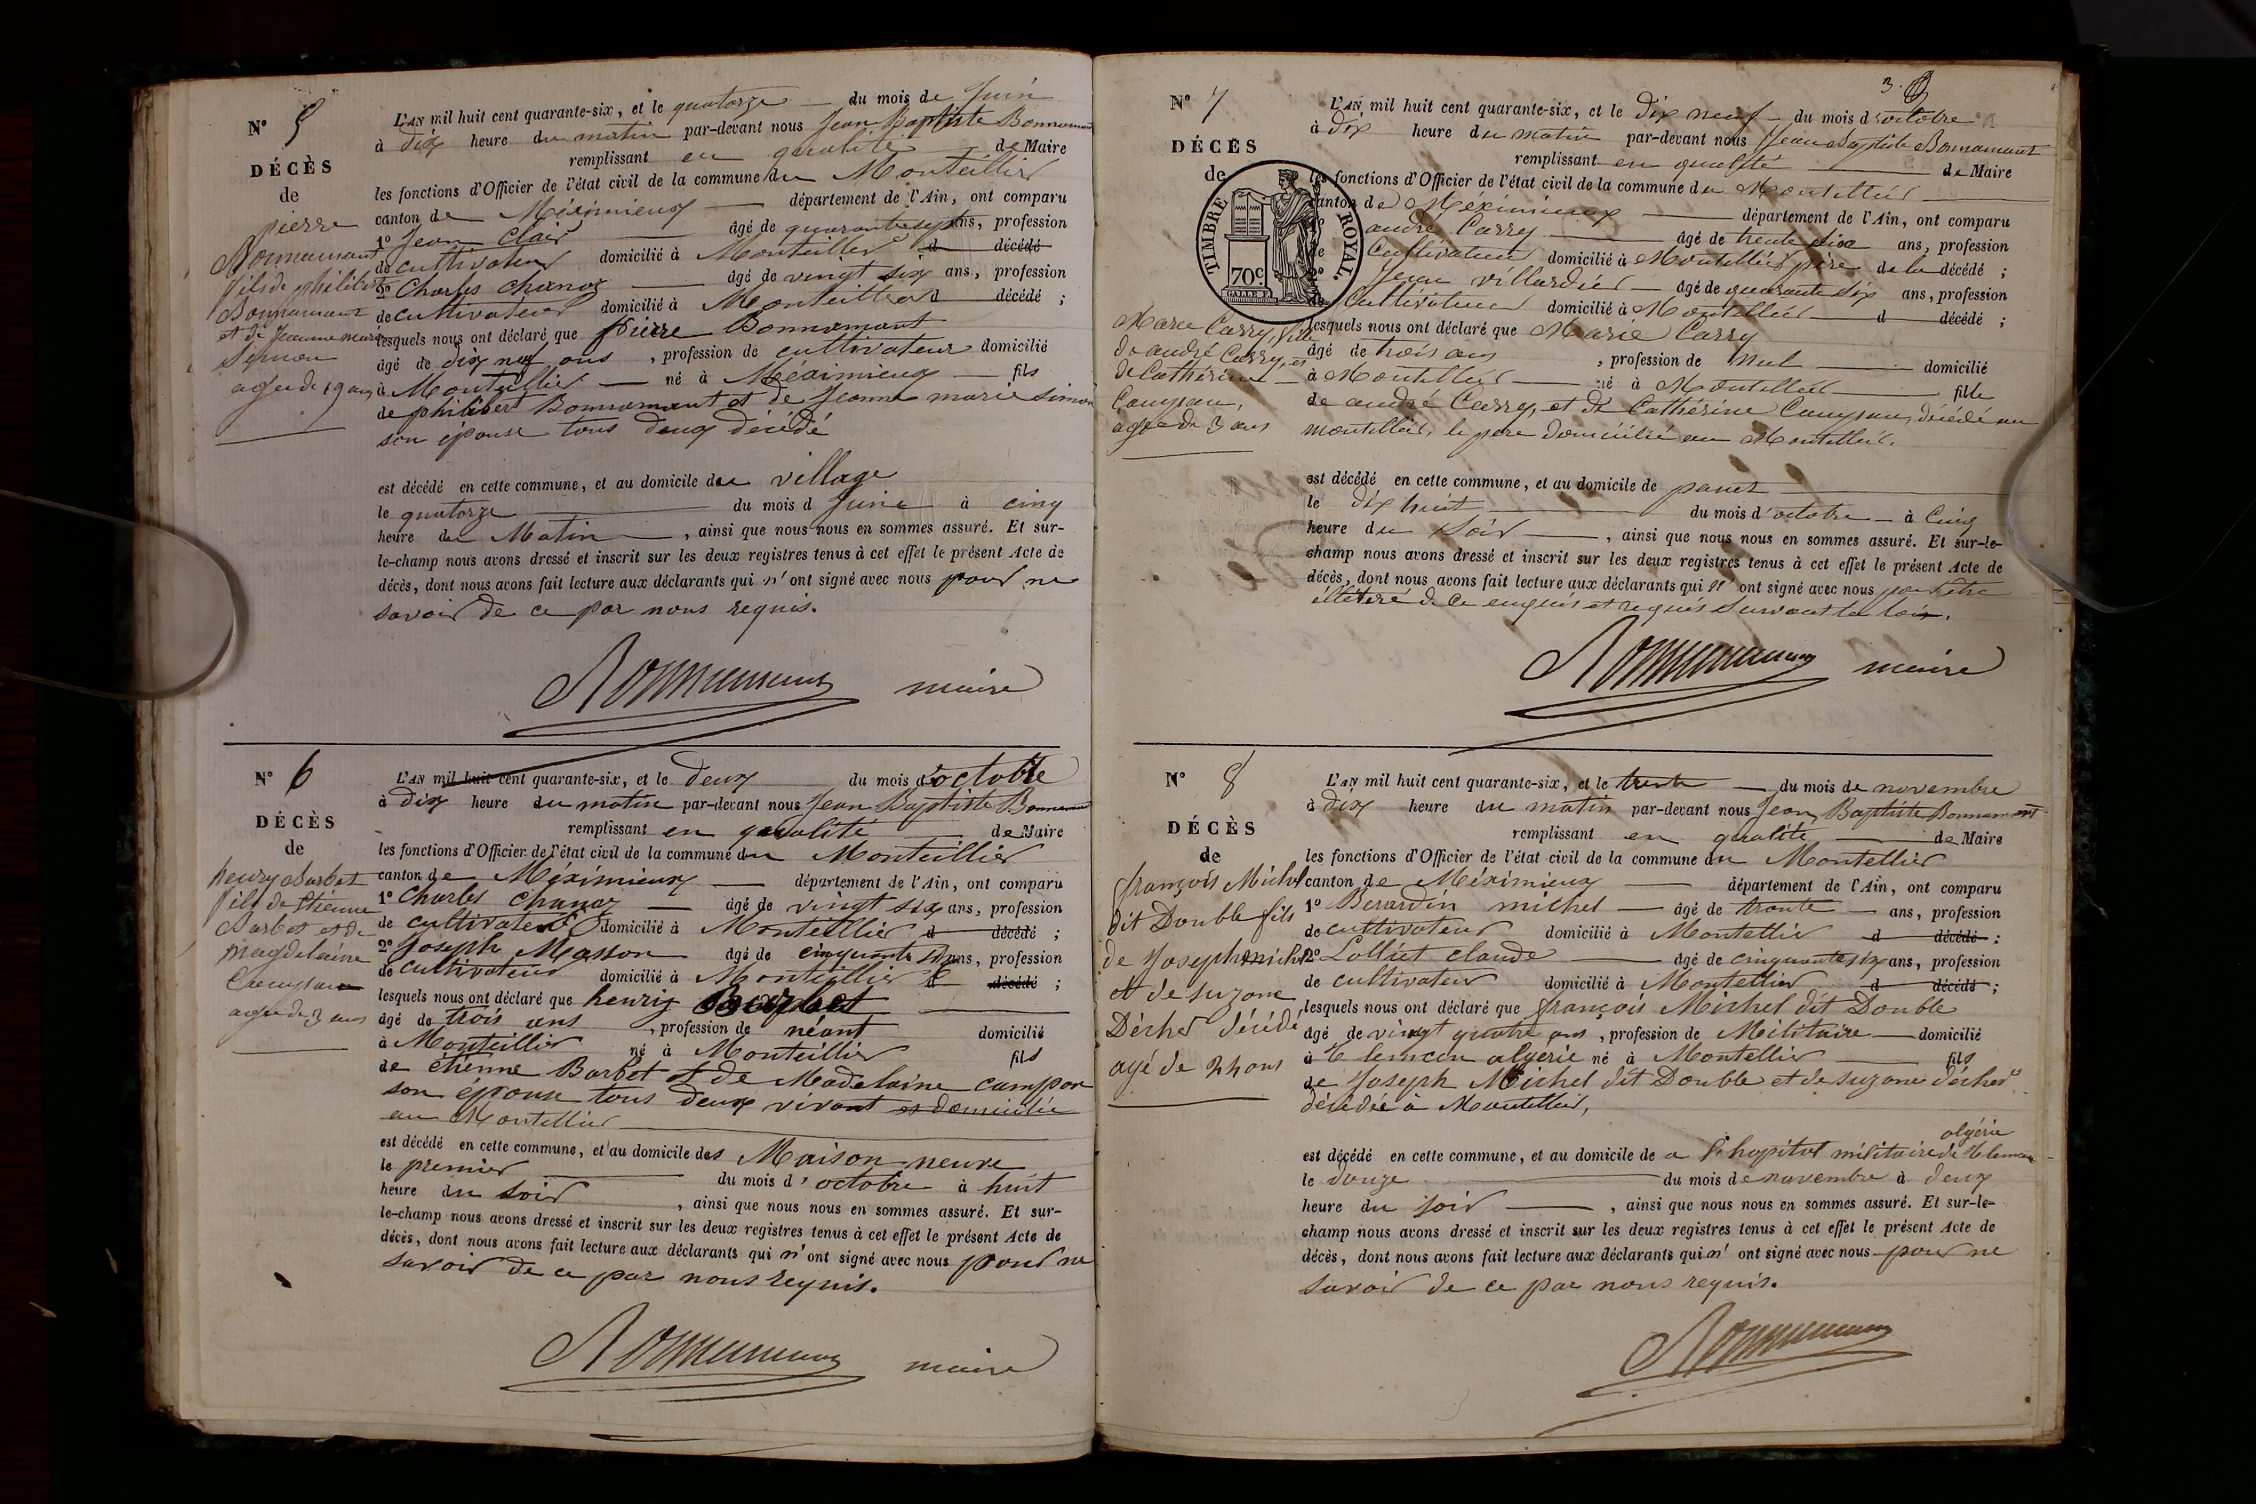 N° 5
DÉCÈS
de
pierre
Bonnamant
fils de philibert
Bonnamant
et de Jeanne marie
Simon
agée de 19 ans
L'AN mil huit cent quarante-six, et le quatorze du mois de Juin
à dix heure du matin par-devant nous Jean Baptiste Bonnamant
remplissant en quralité de Maire
les fonctions d'Officier de l'état civil de la commune du Monteillier
canton de Méximieux département de l'Ain, ont comparu
1° Jean Clair âgé de quarante sept ans, profession
de cultivateur domicilié à Monteillier d décédé
2° Charles Chanoz âgé de vingt six ans, profession
de cultivateur domicilié à Monteillier d décédé ;
lesquels nous ont déclaré que pierre Bonnamant
âgé de dix neuf ans , profession de cultivateur domicilié
à Monteillier né à Méximieux fils
de philibert Bonnamant et de Jeanne marie simon
son épouse tous deux décédé
est décédé en cette commune, et au domicile du village
le quatorze du mois d Juin à cinq
heure du Matin , ainsi que nous nous en sommes assuré. Et sur-
le-champ nous avons dressé et inscrit sur les deux registres tenus à cet effet le présent Acte de
décès, dont nous avons fait lecture aux déclarants qui n' ont signé avec nous pour ne
savoir de ce par nous requis.
Bonnamant maire
N° 6
DÉCÈS
de
henry Barbet
fils de Etienne
Barbet et de
magdelaine
Campan
agée de 3 ans
L'AN mil huit cent quarante-six, et le deux du mois d'octobre
à dix heure du matin par-devant nous Jean Baptiste Bonnamant
remplissant en quralité de Maire
les fonctions d'Officier de l'état civil de la commune du Monteillier
canton de Méximieux département de l'Ain, ont comparu
1° Charles Chanoz âgé de vingt six ans, profession
de cultivateur domicilié à Monteillier d décédé ;
2° Joseph Masson âgé de cinquante dix ans, profession
de cultivateur domicilié à Monteillier d décédé ;
lesquels nous ont déclaré que henrij Barbet
âgé de trois ans , profession de néant domicilié
à Monteillier né à Monteillier fils
de étienne Barbet et de Madelaine campon
son épouse tous deux vivant et domicilié
au Montellier
est décédé en cette commune, et au domicile des Maison neuve
le premier du mois d'octobre à huit
heure du soir , ainsi que nous nous en sommes assuré. Et sur-
le-champ nous avons dressé et inscrit sur les deux registres tenus à cet effet le présent Acte de
décès, dont nous avons fait lecture aux déclarants qui n' ont signé avec nous pour ne
savoir de ce par nous requis.
Bonnamant maire
3.
N° 7
DÉCÈS
de
TIMBRE ROYAL.
70c
Marie Carry, fille
de andré Carry, et
de Cathérine
Campan,
agée de 3 ans
L'AN mil huit cent quarante-six, et le dix neuf du mois d'octobre
à dix heure du matin par-devant nous Jean Baptiste Bonnamant
remplissant en qualité de Maire
les fonctions d'Officier de l'état civil de la commune du Montellier
canton de Méximieux département de l'Ain, ont comparu
andré Carry âgé de trente six ans, profession
de Cultivateur domicilié à Montellier père de la décédé ;
2° Jean villardier âgé de quarante dix ans, profession
de Cultivateur domicilié à Montellier d décédé ;
lesquels nous ont déclaré que Marie Carry
âgé de trois ans , profession de nul domicilié
à Montellier né à Montellier fille
de andré Carry, et de Cathérine Campan, décédé au
montellier, le père domicilié au Montellier.
est décédé en cette commune, et au domicile de
le dix huit du mois d'octobre à Cinq
heure du soir , ainsi que nous nous en sommes assuré. Et sur-le-
champ nous avons dressé et inscrit sur les deux registres tenus à cet effet le présent Acte de
décès, dont nous avons fait lecture aux déclarants qui n' ont signé avec nous pour être
illétéré de ce enquis et requis suivant la loix.
Bonnamant maire
N° 8
DÉCÈS
de
françois Michel
dit Double fils
de Joseph michel
et de suzone
Décher décédé
agé de 24 ans
L'AN mil huit cent quarante-six, et le trente du mois de novembre
à dix heure du matin par-devant nous Jean Baptiste Bonnamant
remplissant en qualité de Maire
les fonctions d'Officier de l'état civil de la commune du Montellier
canton de Méximieux département de l'Ain, ont comparu
1° Berardin michel âgé de trante ans, profession
de cultivateur domicilié à Montellier d décédé ;
2° Lolliet claude âgé de cinquante six ans, profession
de cultivateur domicilié à Montellier d décédé ;
lesquels nous ont déclaré que françois Michel dit Double
âgé de vingt quatre ans , profession de Militaire domicilié
à tlemcen algérie né à Montellier fils
de Joseph Michel dit Double et de suzone décher
décédée à Montellier,
algérie
est décédé en cette commune, et au domicile de a l'hopital militaire de tlemcen
le douze du mois de novembre à deux
heure du soir , ainsi que nous nous en sommes assuré. Et sur-le-
champ nous avons dressé et inscrit sur les deux registres tenus à cet effet le présent Acte de
décès, dont nous avons fait lecture aux déclarants qui n' ont signé avec nous pour ne
savoir de ce par nous requis.
Bonnamant